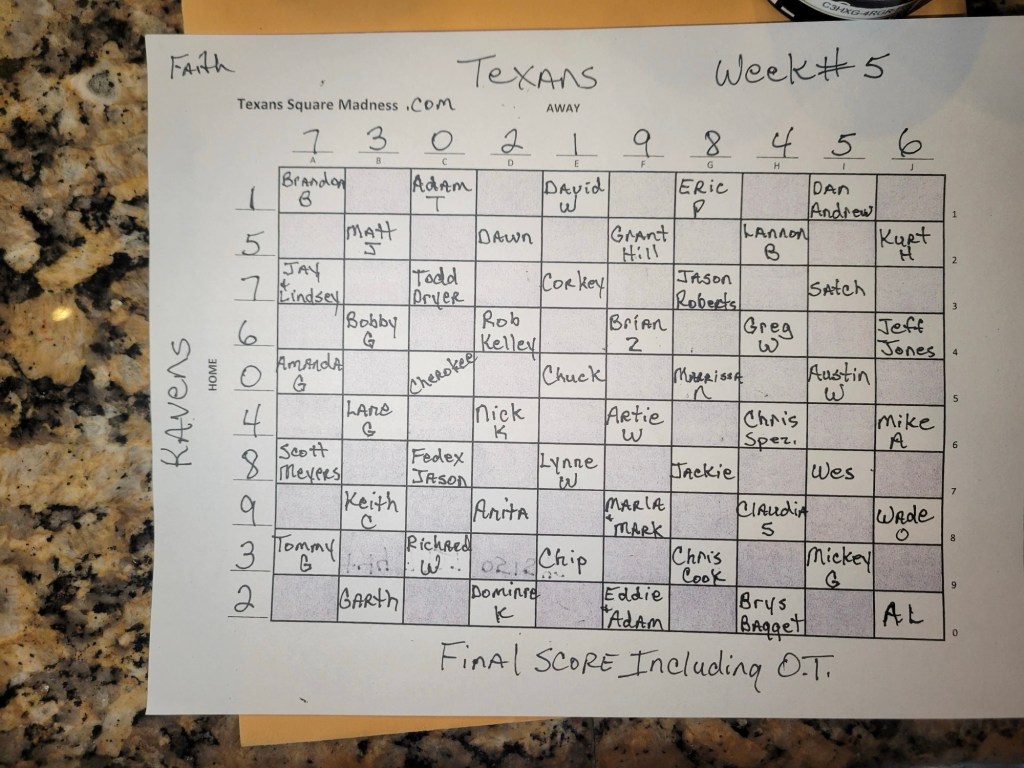 C3HXG-4RGR
Faith
Texans
Week# 5
Texans Square Madness .com
AWAY
7 3 0 2 1 9 8 4 5 6
A B C D E F G H I J
1 Brandon B Adam T David W Eric P Dan Andrew 1
5 Matt J Dawn Grant Hill Lannon B Kurt H 2
7 Jay & Lindsey Todd Dryer Corkey Jason Roberts Satch 3
6 Bobby G Rob Kelley Brian Z Greg W Jeff Jones 4
Ravens
HOME
0 Amanda G Cherokee Chuck Marrissa n Austin W 5
4 Lane G Nick K Artie W Chris Spez. Mike A 6
8 Scott Meyers Fedex Jason Lynne W Jackie Wes 7
9 Keith C Anita Marla & Mark Claudia S Wade O 8
3 Tommy G Richard W Chip Chris Cook Mickey G 9
2 Garth K Eddie & Adam Brys Bagget AL 0
Final Score Including O.T.